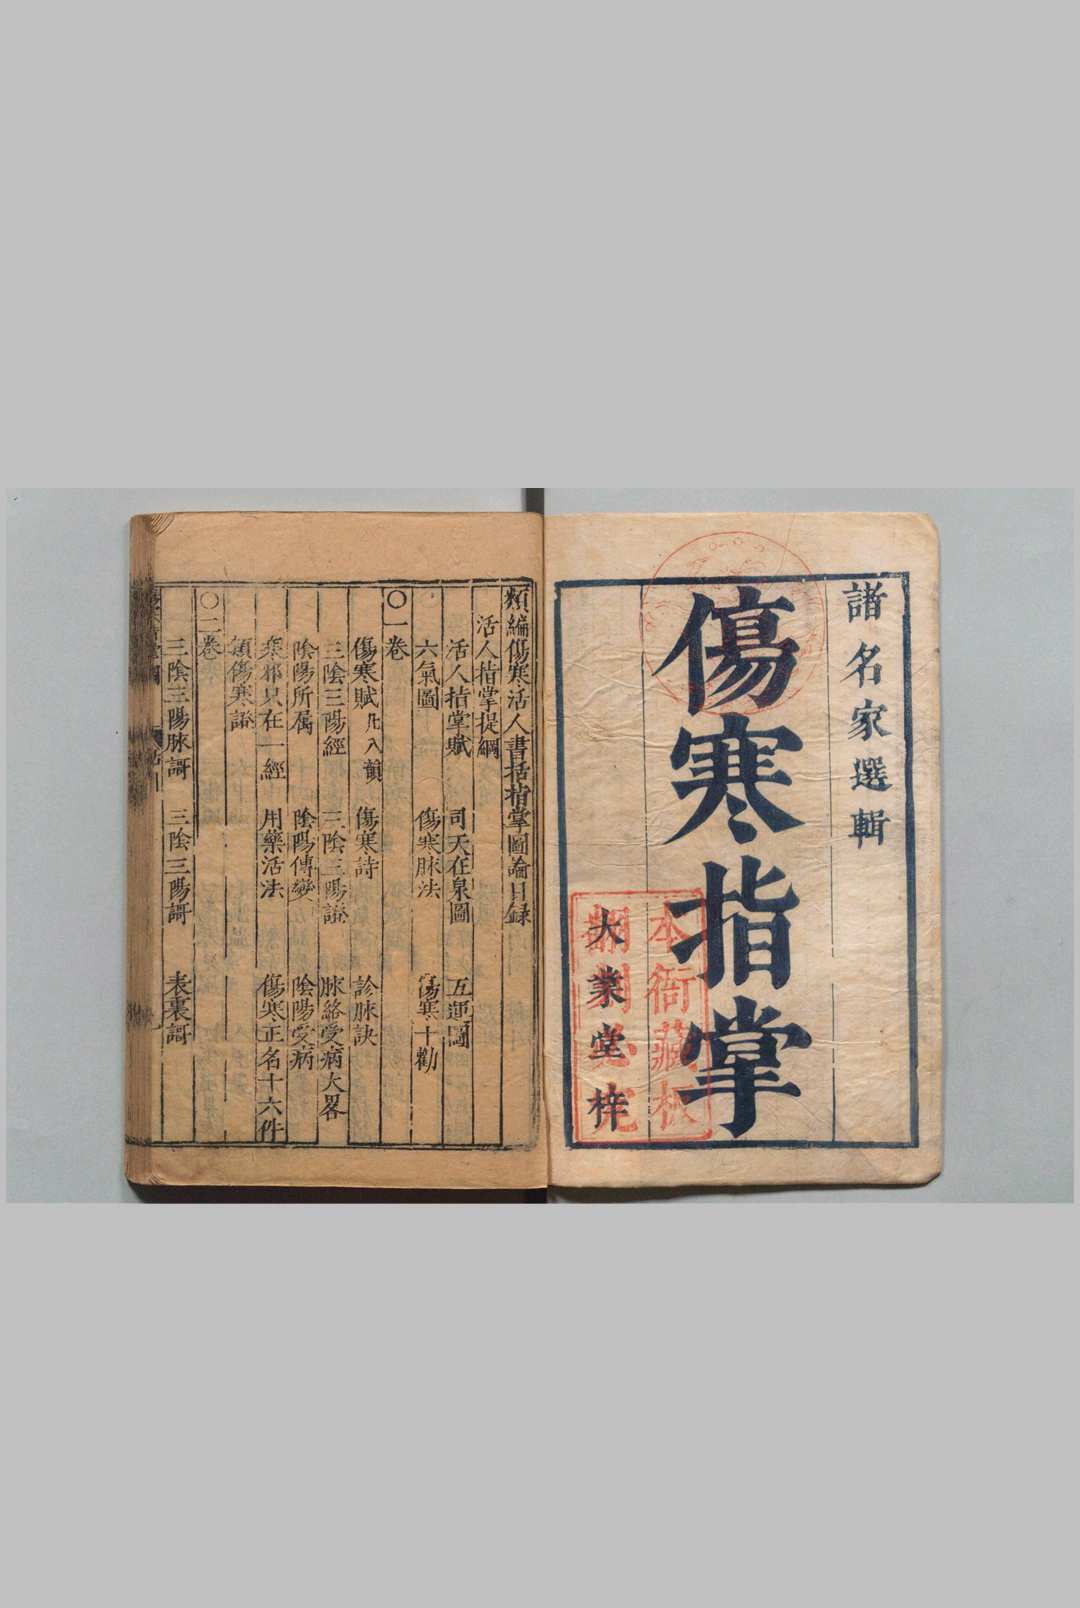 諸名家選輯
傷寒指掌
大業堂梓
本衙藏板
翻刻必究
類編傷寒活人書括指掌圖論目録
活人指掌提綱
活人指掌賦 司天在泉圖 五運圖
六氣圖 傷寒脉法 傷寒十勸
○一卷
傷寒賦凡八韻 傷寒詩 診脉訣
三陰三陽經 三陰三陽證 脉絡受病大畧
陰陽所属 陰陽傳變 陰陽受病
寒邪只在一經 用藥活法 傷寒正名十六件
類傷寒證
○二卷
三陰三陽脉謌 三陰三陽謌 表裏謌